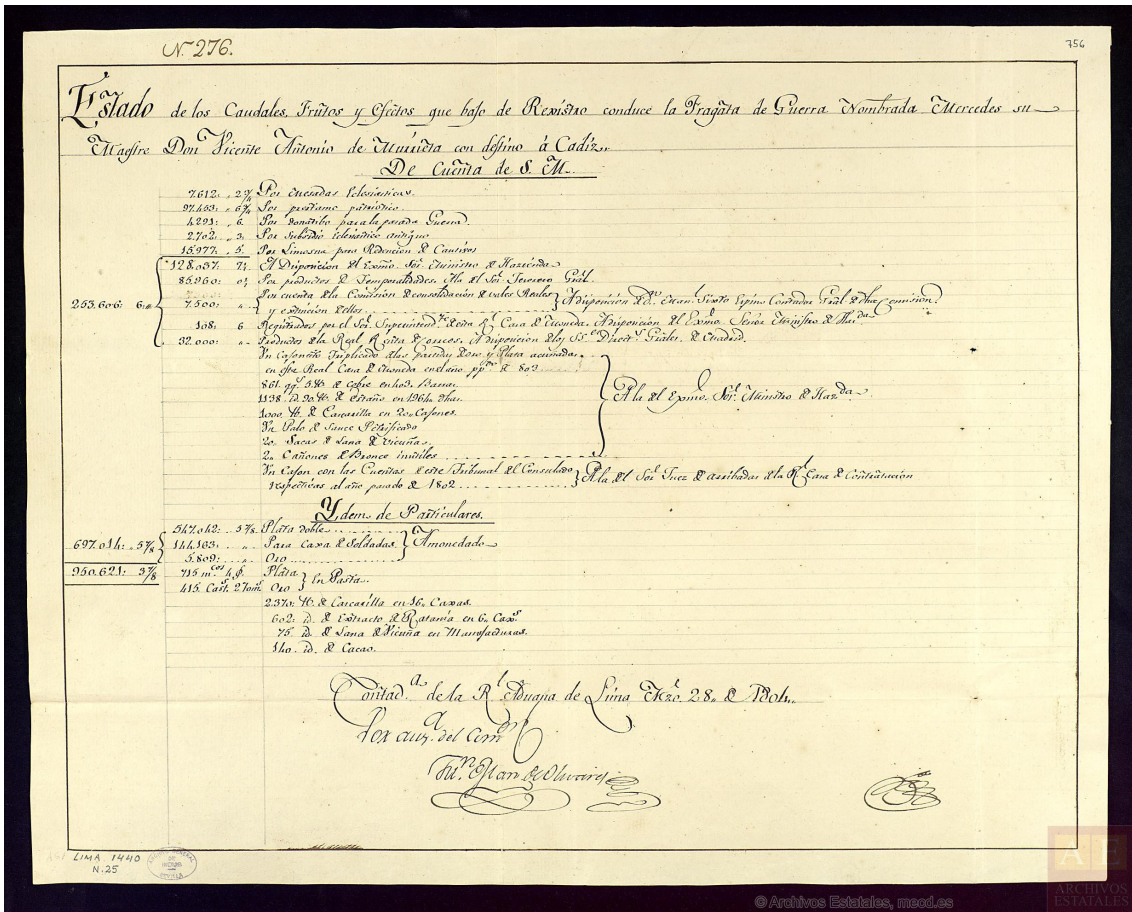 N. 276.
756
Estado de los Caudales, Frutos y Efectos que bajo de Rexistro conduce la Fragata de Guerra Nombrada Mercedes su
Maestre Don Vicente Antonio de Murrieta con destino á Cadiz.
De Cuenta de S. M.
7.612: 2¾ Por Mesadas Eclesiasticas.
97.453 6¾ Por prestamo patriotico.
4.291: 6. Por Donatibo para la pasada Guerra.
2.702 3. Por Subsidio Eclesiastico antiguo
15.977: 5. Por Limosna para Redencion de Cautivos
128.037: 7½ A Disposicion del Exmõ. Sor. Ministro de Hazienda
85.960: 0½ Por productos de Temporalidades. A la del Sor. Tesorero Gral.
253.606: 6
7.500: Por cuenta de la Comision de consolidacion de vales Reales y extincion de ellos. A disposicion de Dn. Man. Sixto Espinosa Contador Gral de dha Comision
108: 6 Registrados por el Sor. Superintende. de esta Rl Casa de Moneda. A disposicion del Exmo. Señor Ministro de Hazda
32.000: Productos de la Real Renta de Correos. A disposicion de los SSres Directs. Grales. de Madrid.
Un Cajoncito triplicado de las partidas de oro y Plata acuñadas
en esta Real Casa de Moneda en el año ppdo. de 803
861. qqs. 5 lb. de Cobre en 403. Barras.
1138. id. 90. lb. de Estaño en 1964. dhas.
1000. lb. de Cascarilla en 20. Cajones.
Un Palo de Sauce Petrificado
20. Sacas de Lana de Vicuña.
2. Cañones de Bronce inutiles
A la del Exmo. Sor. Ministro de Hazda.
Un Cajon con las Cuentas de este Tribunal del Consulado
respectivas al año pasado de 1802
A la del Sor. Juez de arribadas de la Rl. Casa de Contratacion
Ydem de Particulares.
547.042: 5⅞ Plata doble
697.014: 5⅞ 144.163. Para Caxa de Soldadas Amonedado
5.809: Oro
950.621: 3⅞ 715 mcos 4 Plata
En Pasta
415. Casts. 2 tom. Oro
2.370: lb. de Cascarilla en 16. Caxas.
602: id. de Extracto de Ratania en 6. Caxs.
75. id. de Lana de Vicuña en Manufacturas.
140. id. de Cacao.
Contada. de la Rl. Aduana de Lima Mzo. 28. de 1804.
Por de Olivares
LIMA 1440
N. 25
ARCHIVO GENERAL DE INDIAS SEVILLA
AE
ARCHIVOS ESTATALES
© Archivos Estatales, mecd.es